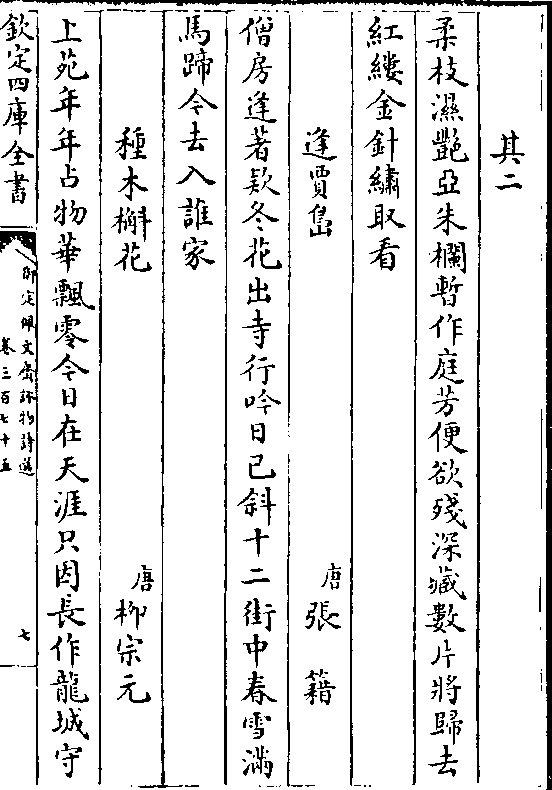 其二
柔枝濕艷亞朱欄暫作庭芳便欲殘深藏數片將歸去
紅縷金針繡取看
逢賈島
唐張籍
僧房逢著欵冬花出寺行吟日已斜十二街中春雪滿
馬蹄今去入誰家
種木槲花
唐柳宗元
上苑年年占物華飄零今日在天涯只因長作龍城守
欽定四庫全書
御定佩文齋詠物詩選
卷三百七十五
七